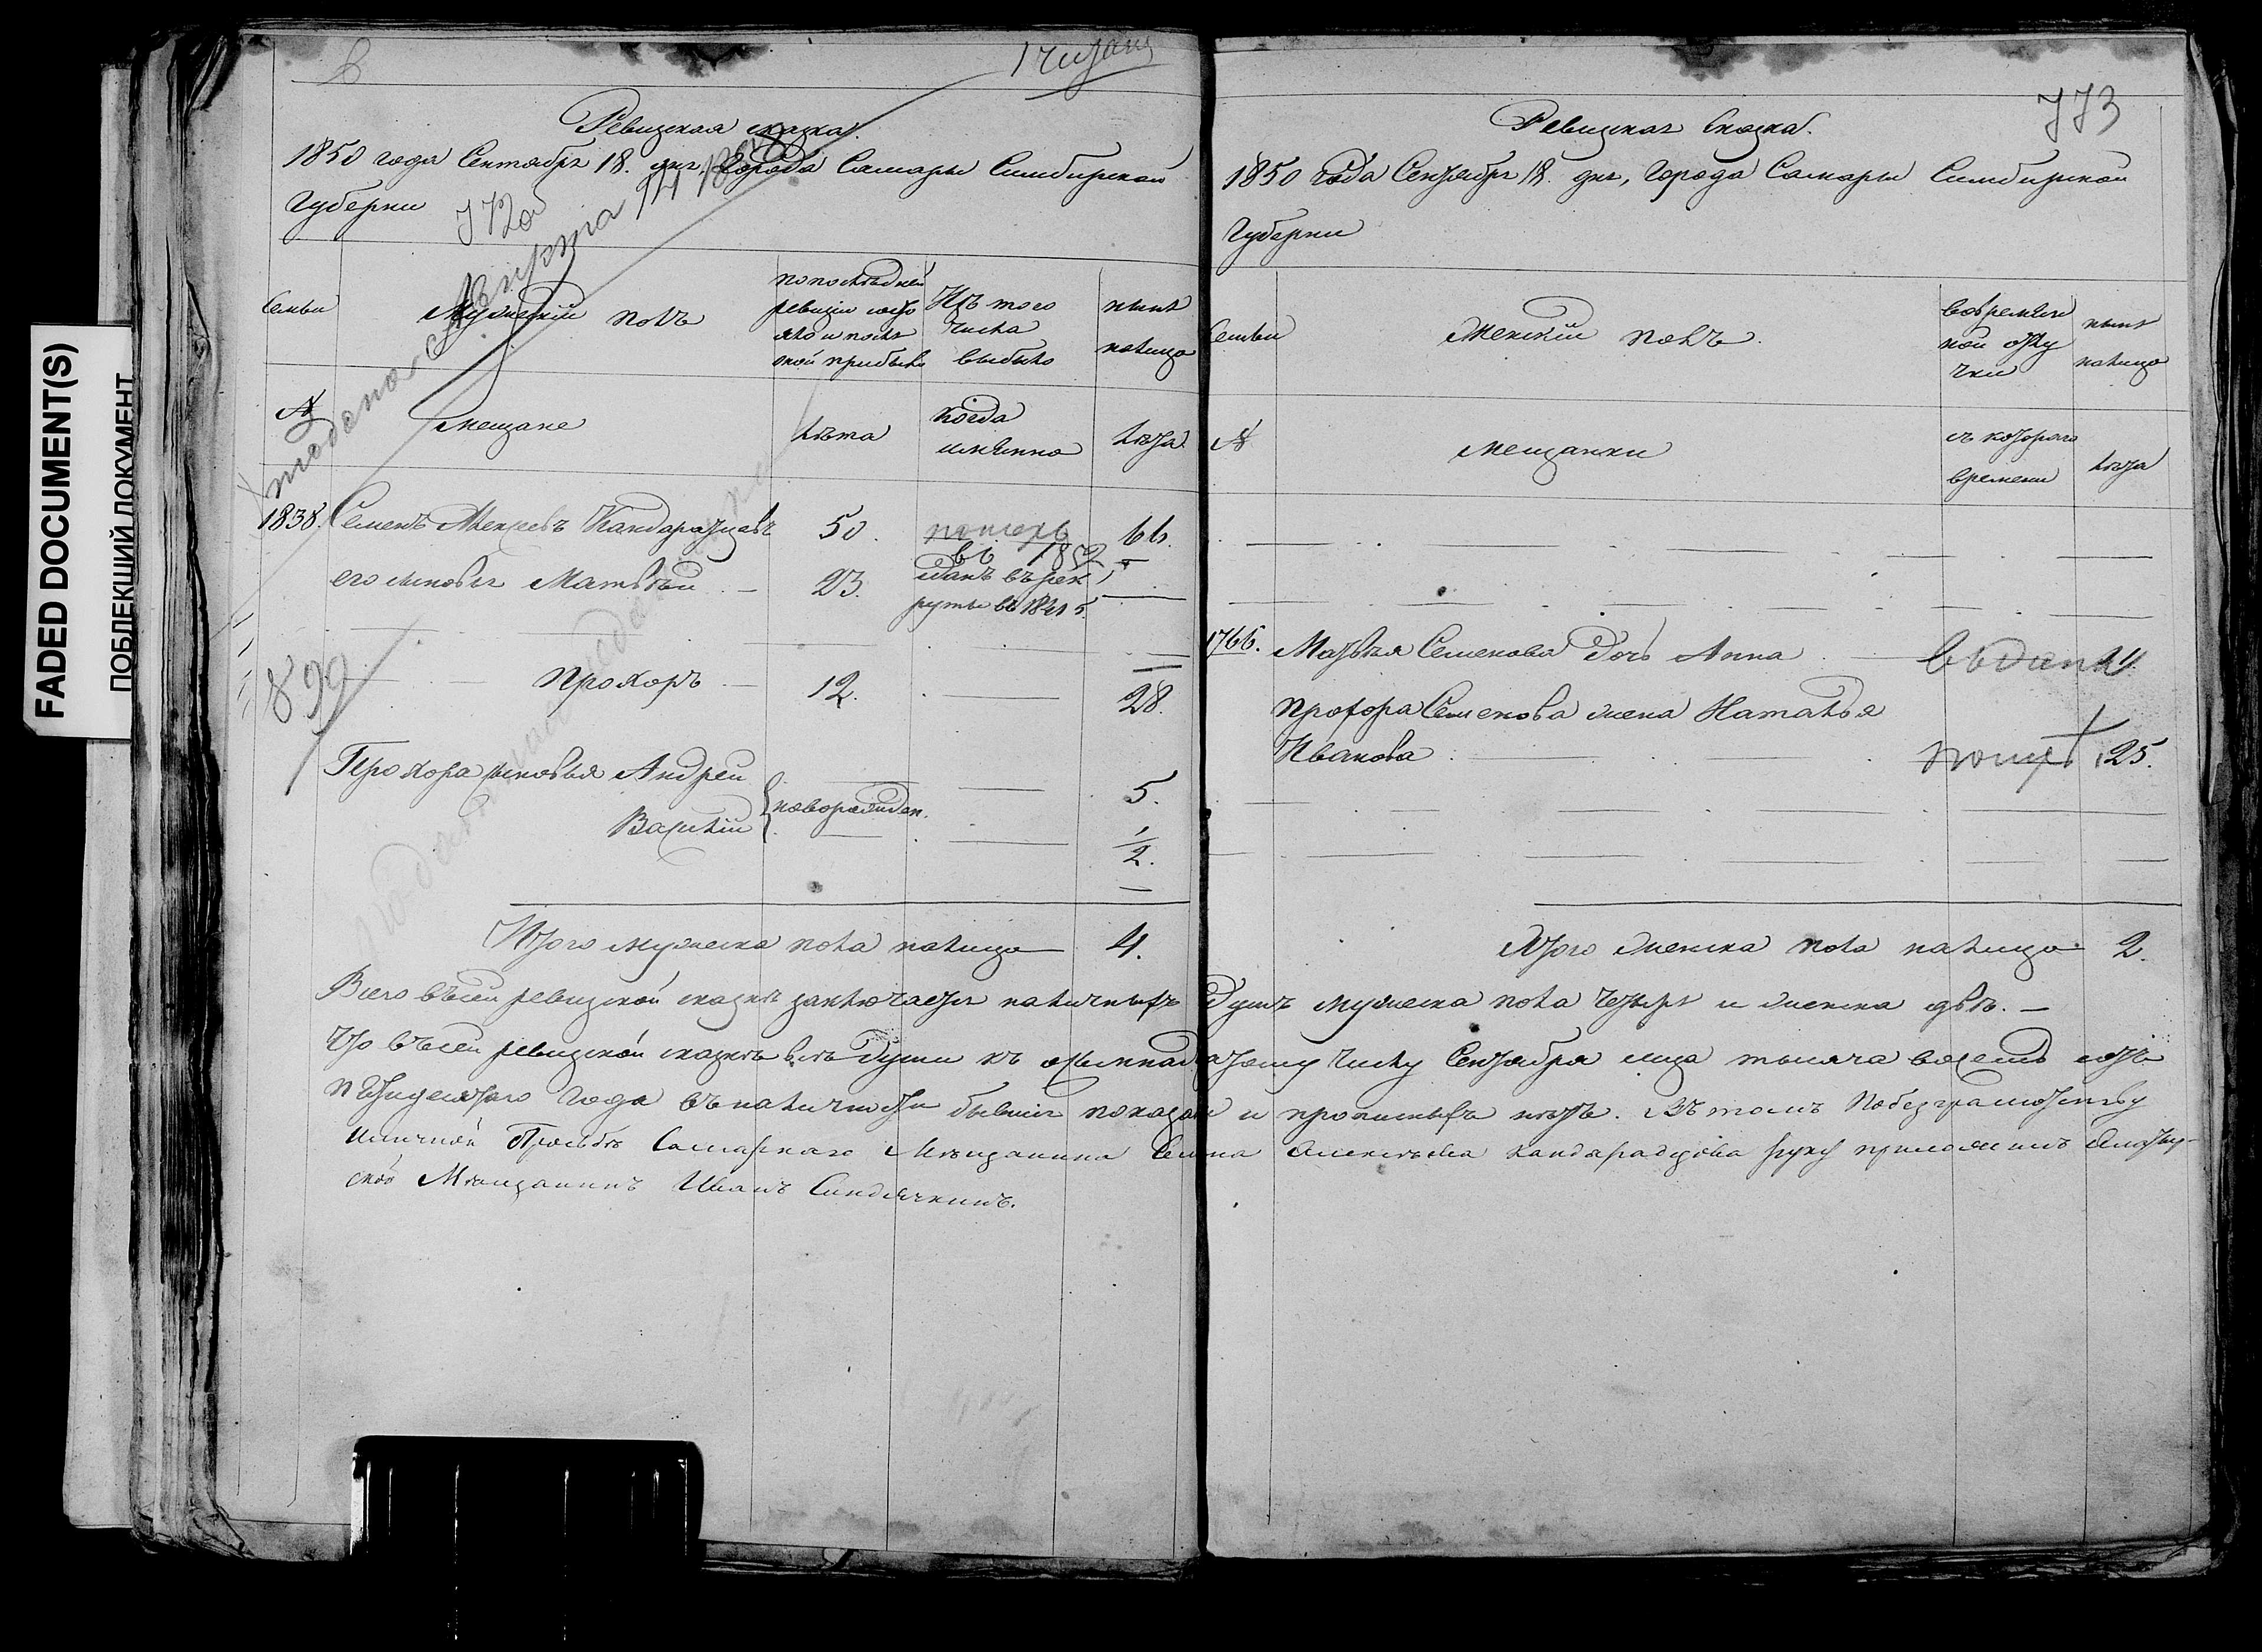 FADED DOCUMENT(S)
ПОБЛЕКШИЙ ДОКУМЕНТ
Ревизская сказка.
1850 года Сентября 18. дня, Города Самары Симбирской
Губернии
Семьи
Мужеский полъ
по последней
ревизии состо
яло и после
оной прибыло
Изъ того
числа
выбыло
ныне
налицо
№
Мещане
лета
когда
имянно
лета
1838. Семенъ Алексеевъ Кандаратцевъ 50. померъ 66.
въ 1852
его сыновья Матвей 23. сданъ въ рек
руты въ 1845.
899
Прохоръ 12. 28.
Прохора сыновья Андреи 5.
Василий новорожден. 1/2.
Итого мужеска пола налицо 4.
773
Ревизская Сказка.
1850 года Сентября 18. дня, Города Самары Симбирской
Губернии
Семьи
Женский полъ.
во времян
ной отлу
чки
ныне
налицо
№
Мещанки
съ котораго
времени
лета
1766. Матвея Семенова дочь Анна
Прохора Семенова жена Наталья
Иванова 25.
Итого женска пола налицо 2.
Всего въ сей ревизской сказке заключается наличныхъ Душъ мужеска пола четыре и женска две.
Что въ сей ревизской сказке все Души къ осьмнадцатому числу Сентября мца тысяча восемь сотъ
пятидесятаго года въ наличности бывшия показаны и прописныхъ нетъ. Въ томъ по безграмотству
и личной Прозьбе Самарскаго Мещанина Семена Алексеева Кандарадцова руку приложилъ
Мещанинъ Иванъ